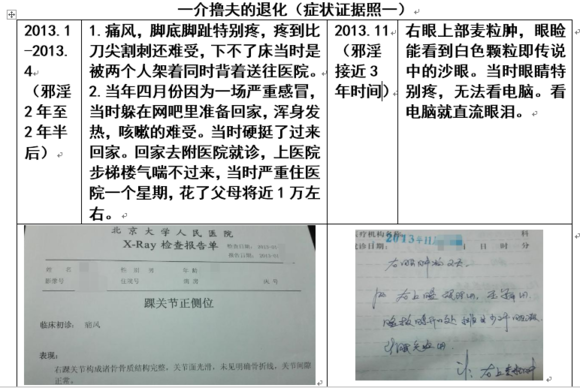 一介撸夫的退化（症状证据照一）
2013.1
-2013.
4
（邪淫
2 年至
2 年半
后）
1. 痛风，脚底脚趾特别疼，疼到比
刀尖割刺还难受，下不了床当时是
被两个人架着同时背着送往医院。
2. 当年四月份因为一场严重感冒，
当时躲在网吧里准备回家，浑身发
热，咳嗽的难受。当时硬挺了过来
回家。回家去附医院就诊，上医院
步梯楼气喘不过来，当时严重住医
院一个星期，花了父母将近 1 万左
右。
2013.11
（邪淫
接近 3
年时间）
右眼上部麦粒肿，眼睑
能看到白色颗粒即传说
中的沙眼。当时眼睛特
别疼，无法看电脑。看
电脑就直流眼泪。
北京大学人民医院
X-Ray 检查报告单
踝关节正侧位
临床初诊：痛风
表现：
右踝关节构成诸骨骨质结构完整，关节面光滑，未见明确骨折线，关节间隙
正常。
2013年11